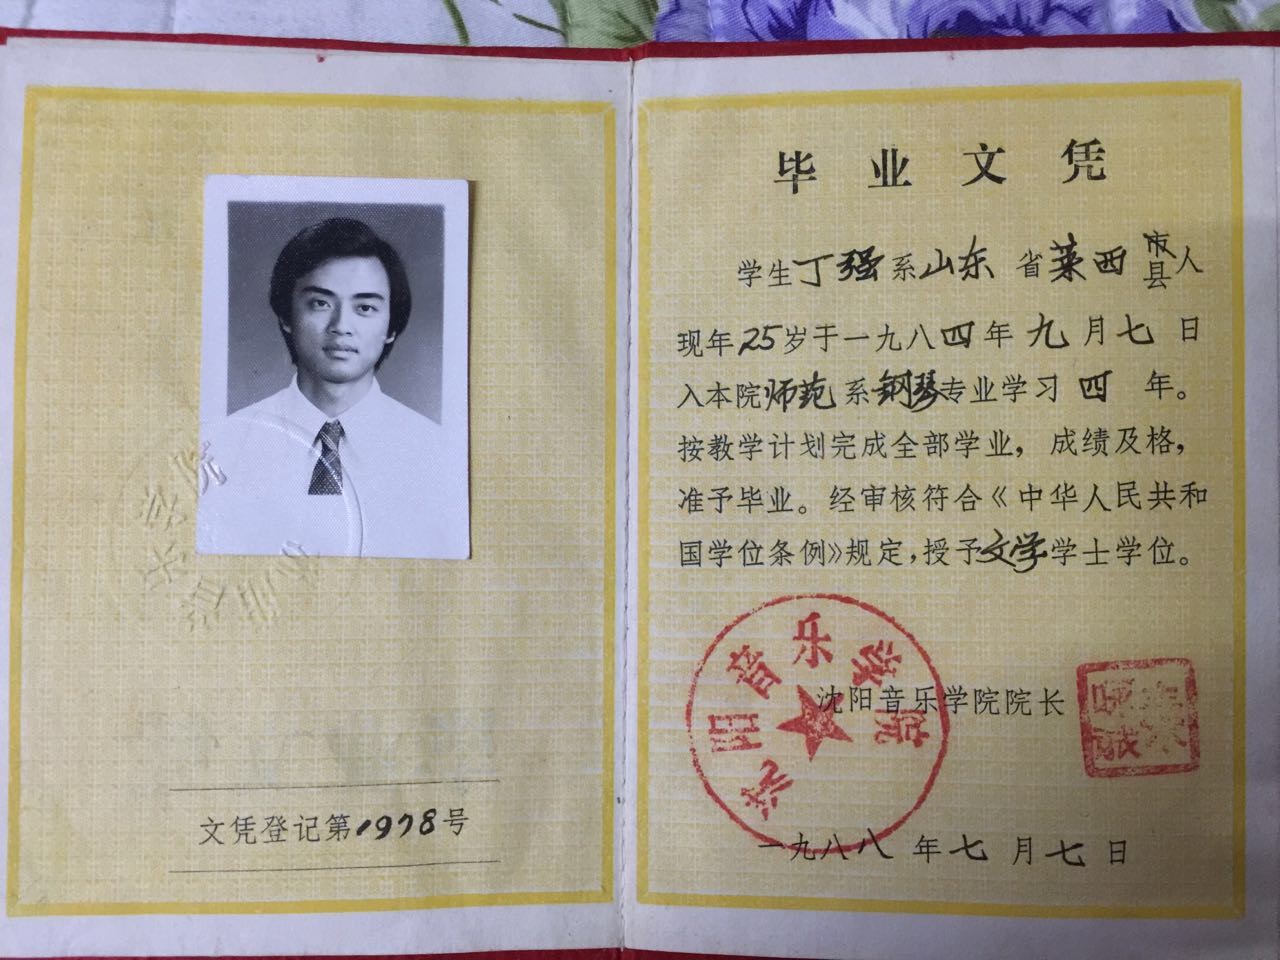 音乐学院
文凭登记第1978号
毕业文凭
学生丁强系山东省莱西市县人
现年25岁于一九八四年九月七日
入本院师范系钢琴专业学习四年。
按教学计划完成全部学业,成绩及格,
准予毕业。经审核符合《中华人民共和
国学位条例》规定,授予文学学士学位。
沈阳音乐学院
沈阳音乐学院院长
一九八八年七月七日